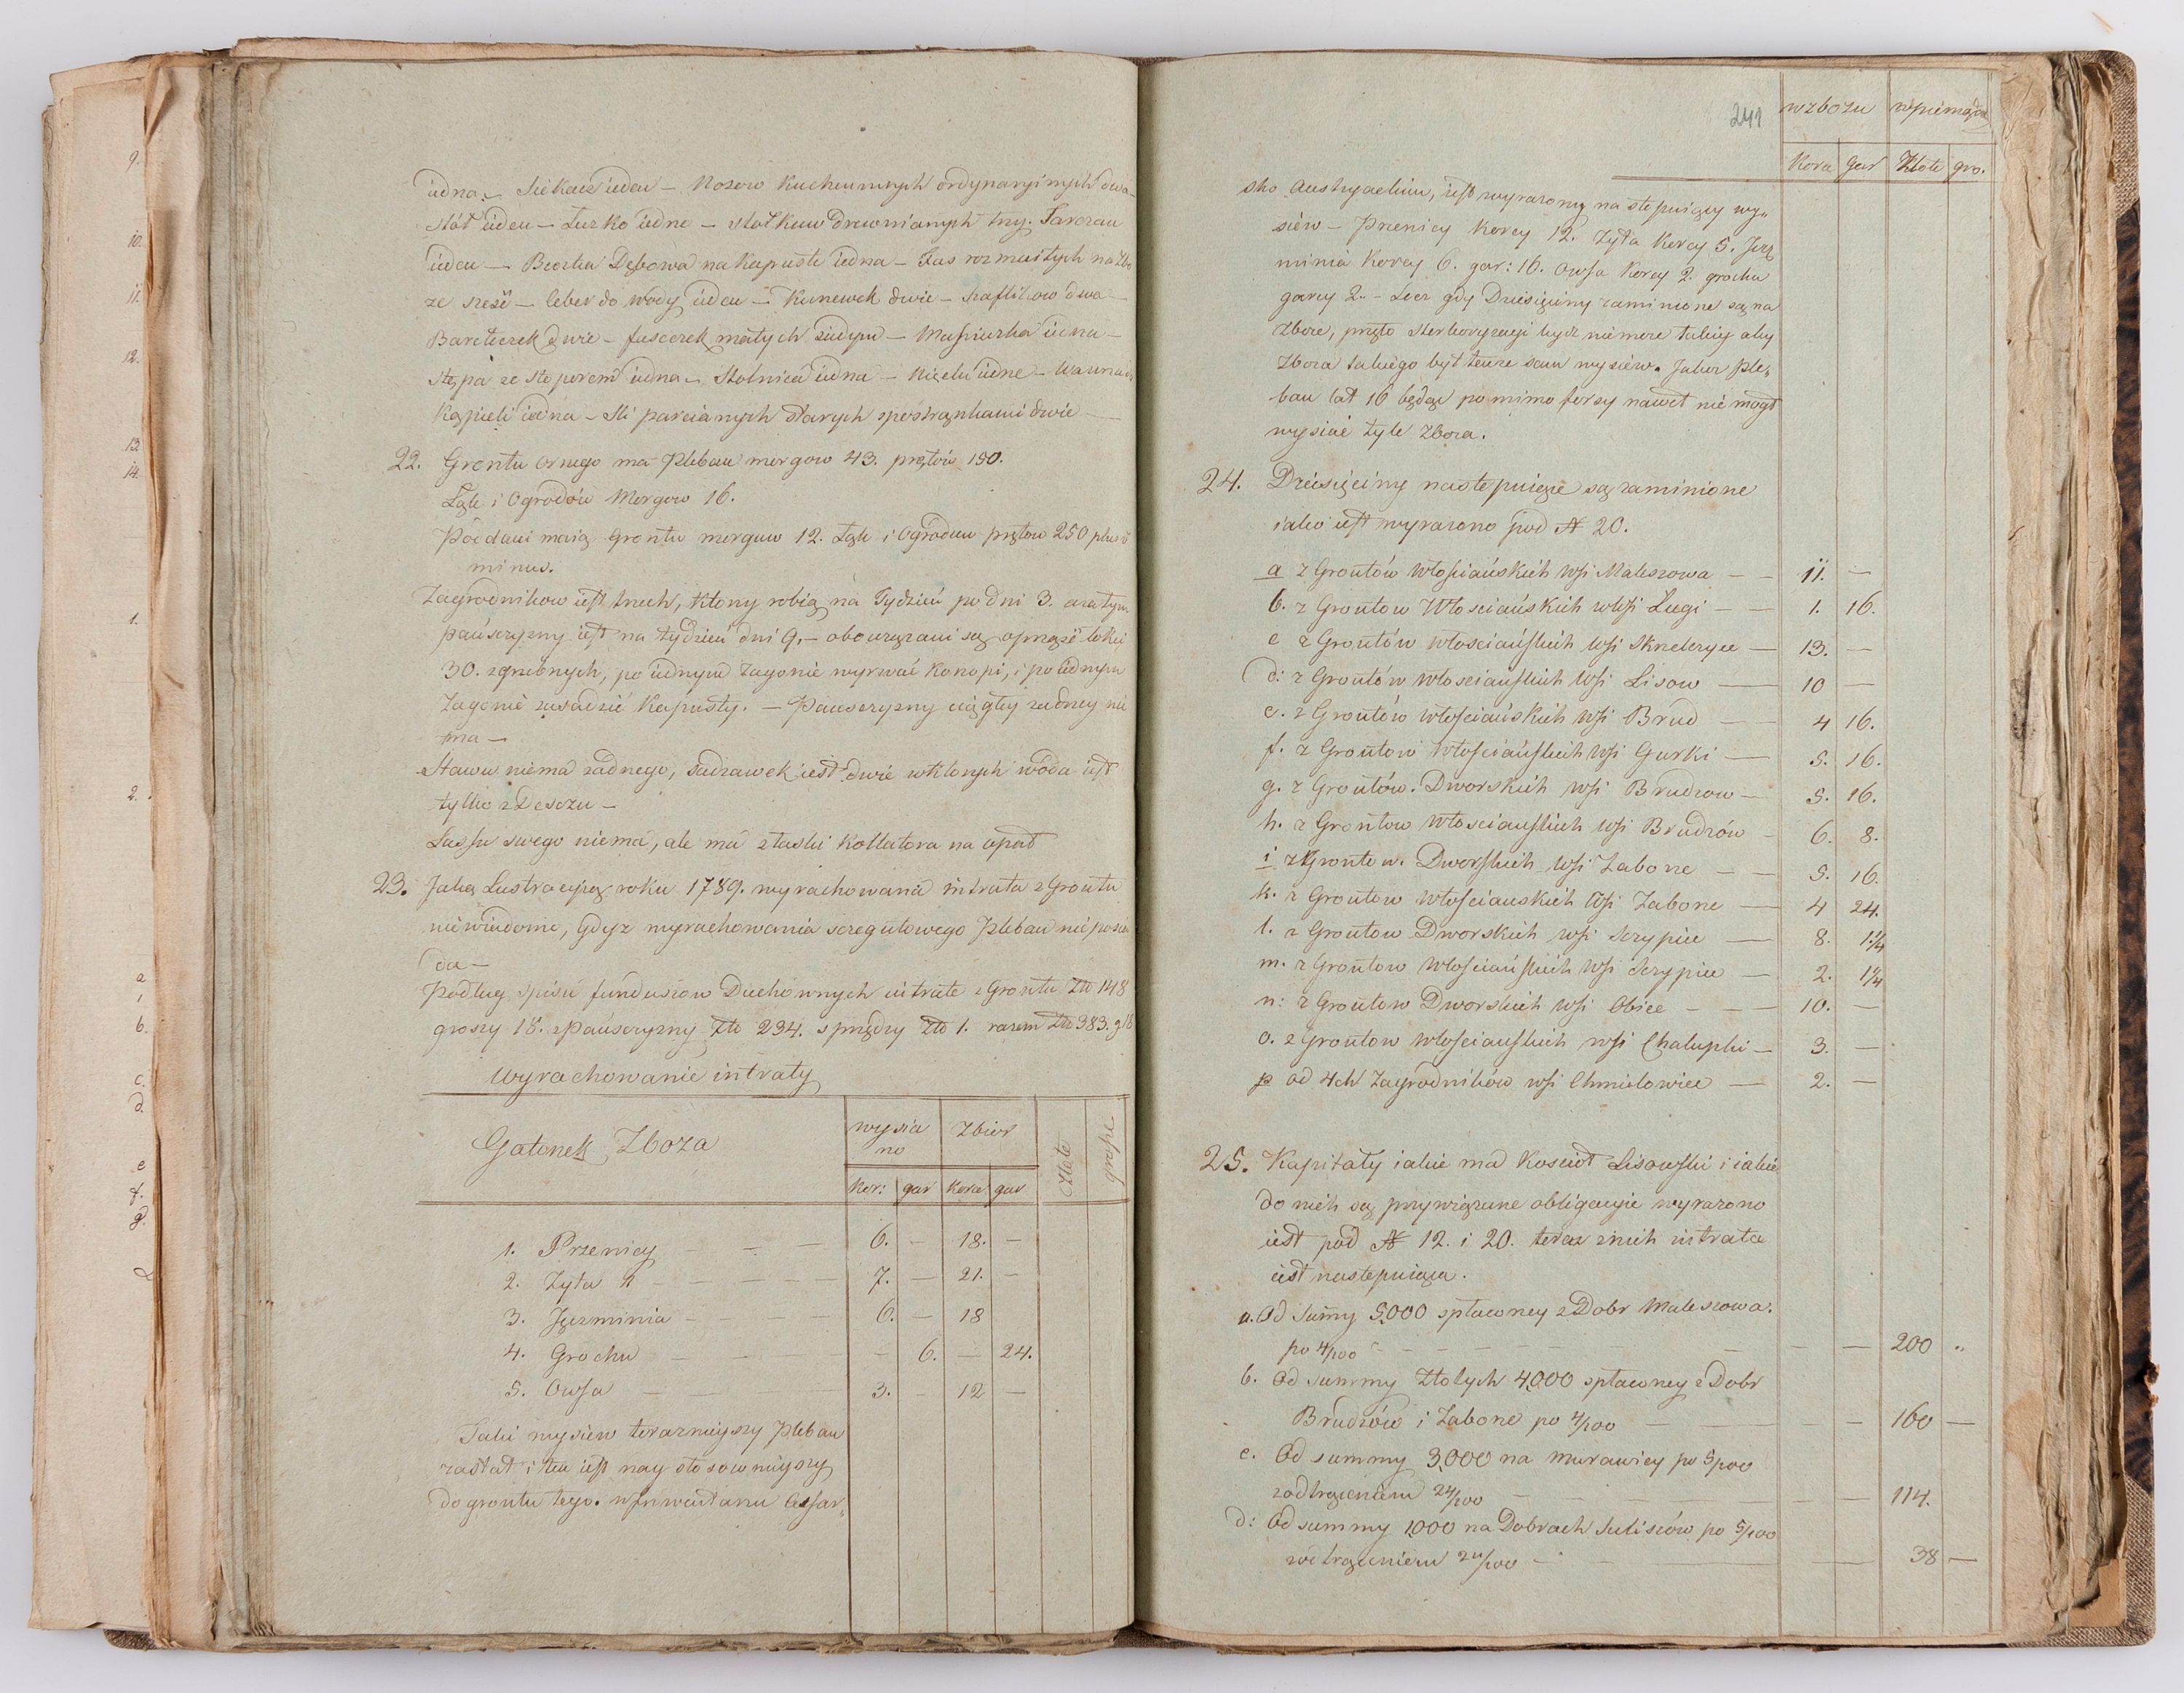 iedna. – Siekacz ieden – Nozow Kuchennych ordynaryinych dwa
Stół ieden – Łuzko iedne – stołkuw drewnianych trzy. Tarczan
ieden – Beczka Dębowa na Kapuste iedna – Fas rozmaitych na zbo
ze sześć – leber do wody ieden – Kunewek dwie – szaflikow dwa –
Baryłeczek dwie – faseczek małych siedym – Maśniczka iedna –
Stępa ze steporem iedna – Stolnica iedna – Niecki iedne – Wanna do
Kąpieli iedna – Sli parcianych starych z postrąnkami dwie –
22. Grontu ornego ma Pleban morgow 43. prętów 150.
Łąk i Ogrodów Morgow 16.
Poddani maią Grontu morguw 12. Łąk i Ogroduw prętow 250 plus
minus.
Zagrodnikow iest trzech, Ktory robią na Tydzień po dni 3. a zatym
pańszczyzny iest na tydzień dni 9. – obowiązani są oprząść łokci
30. zgrzebnych, po iednym zagonie wyrwać Konopi, i po iednym
Zagonie zasadzić Kapusty. – Pańszczyzny ciągłey zadney nie
ma –
Stawu niema zadnego, sadzawek iest dwie wktorych woda iest
tylko z Desczu –
Lassu swego niema, ale ma z łaski Kollatora na opał
23. Jaką Lustracyją roku 1789. wyrachowana intrata z Grontu
niewiadomo, Gdyz wyrachowania sczegułowego Pleban nie posia
da –
Podług Spisu funduszow Duchownych intrata z Grontu Zło 148
groszy 18. z Pańsczyzny Zło 234. s przędzy Zło 1. razem Zło 383. g 18
Wyrachowanie intraty
Gatonek Zboza
wysia no
Zbior
Złote
grosze
Kor: gar Korc gar
1. Przenicy – – – 6. – 18. –
2. Zyta – – – – – 7. – 21. –
3. Jęczminia – – – – 6. – 18
4. Grochu – – – – 6. – 24.
5. Owsa – – 3. – 12 –
Taki wysiew terazniyszy Pleban
zastał i ten iest nay stosowniyszy
do grontu tego. w Jnwentarzu Cesar„
241
wzbozu wpieniądzach
Korc Gar Złote gro.
sko Austryackim, iest wyrazony nastepuiący wy„
siéw – Przenicy Korcy 12. Zyta Korcy 5. Jęcz
minia Korcy 6. gar: 16. Owsa Korcy 2. grochu
garcy 2. – Lecz gdy Dziesięciny zaminione są na
Zboże, przeto bydz niemoze takiey aby
Zboza takiego był tenze sam wysiéw. Jakoz Ple„
ban lat 16 będąc pomimo forsy nawet nie mogł
wysiać tyle zboza.
24. Dziesięciny nastepuiące są zaminione
iako iest wyrazono pod N 20.
a z Grontów Włościańskich Wsi Maleszowa – – 11. –
b. z Grontow Włosciańskich wWsi Ługi – – 1. 16.
c z Grontów włosciańskich Wsi Skrzelczyce – 13. –
d: z Grontów włosciańskich Wsi Lisow – 10 –
e. z Grontów włościańskich Wsi Brud – 4 16.
f. z Grontow Włościańskich Wsi Gurki – 5. 16.
g. z Grontów. Dworskich Wsi Brudzow – 5. 16.
h. z Grontow Włosciańskich Wsi Brudzów – 6. 8.
i z Grontow. Dworskich Wsi Zaborze – – 5. 16.
k. z Grontow Włościanskich Wsi Zaborze – 4 24.
l. z Grontow Dworskich Wsi Sczypiec – 8. 1 1/4
m. z Grontow Włościańskich Wsi Sczypiec – 2. 1 1/4
n: z Grontow Dworskich Wsi Obice – – – 10. –
o. z Grontow Włościańskich wsi Chalupki – 3. –
p od 4ch Zagrodników wsi Chmielowice – 2. –
25. Kapitały iakie ma Kościoł Lisowski i iakie
do nich są przywiązane obligacyie wyrazono
iest pod N 12. i 20. teraz znich intrata
iest nastepuiąca.
a. Od Summy 5,000 spłaconey z Dobr Maleszowa.
po 4/100 – – – – – – 200 „
b. Od summy Złotych 4,000 spłaconey z Dobr
Brudzów i Zaborze po 4/100 – – – 160 –
c. Od summy 3,000 na Murawicy po 5/100
z odtrąceniem 24/100 – – – – – 114.
d: Od summy 1,000 na Dobrach Suliszów po 5/100
z odtrąceniem 24/100 – – – 38 –